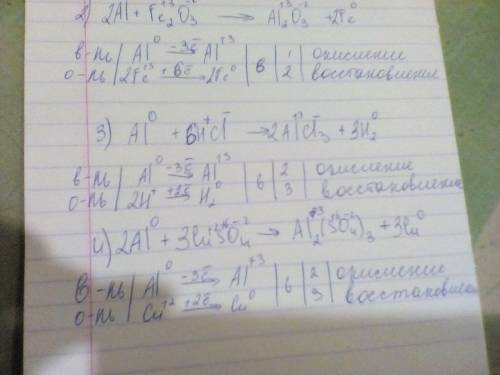 2) 2Al + Fe₂⁺³O₃⁻² → Al₂⁺³O₃⁻² + 2Fe
в-ль | Al⁰ –3ē→ Al⁺³ | 6 | 1 | окисление
о-ль | 2Fe⁺³ +6ē→ 2Fe⁰ | | 2 | восстановлен
3) Al⁰ + 6H⁺Cl⁻ → 2AlCl₃ + 3H₂⁰
в-ль | Al⁰ –3ē→ Al⁺³ | 6 | 2 | окисление
о-ль | 2H⁺ +2ē→ H₂⁰ | | 3 | восстановление
4) 2Al⁰ + 3CuSO₄ → Al₂⁺³(SO₄)₃ + 3Cu⁰
в-ль | Al⁰ –3ē→ Al⁺³ | 6 | 2 | окисление
о-ль | Cu⁺² +2ē→ Cu⁰ | | 3 | восстановлен